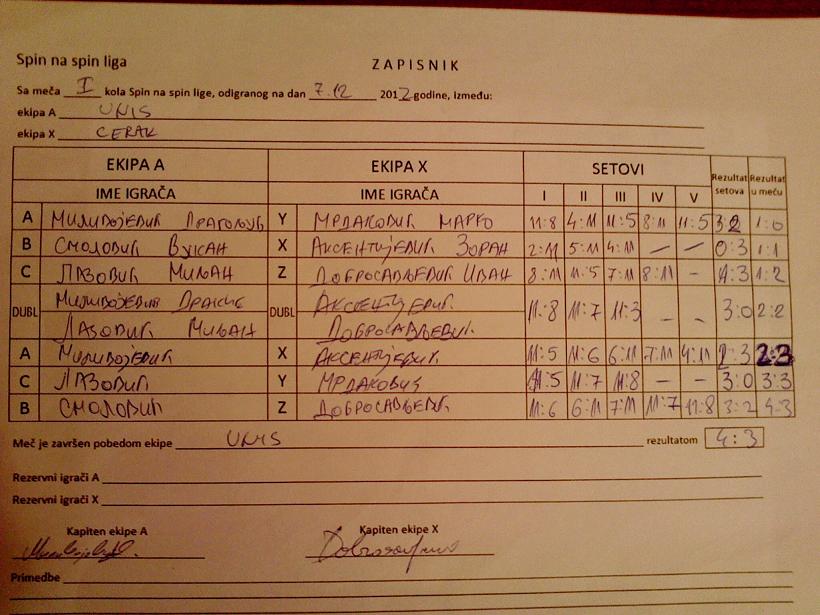 Spin na spin liga
ZAPISNIK
Sa meča I kola Spin na spin lige, odigranog na dan 7.12 2012 godine, između:
ekipa A UNIS
ekipa X CERAK
EKIPA A EKIPA X SETOVI Rezultat setova Rezultat u meču
IME IGRAČA IME IGRAČA I II III IV V
A МИЛИВОЈЕВИЋ ДРАГОЉУБ Y МРДАКОВИЋ МАРКО 11:8 4:11 11:5 8:11 11:5 3:2 1:0
B СМОЛОВИЋ ВУКАН X АКСЕНТИЈЕВИЋ ЗОРАН 2:11 5:11 4:11 — — 0:3 1:1
C ЛАЗОВИЋ МИЛАН Z ДОБРОСАВЉЕВИЋ ИВАН 8:11 11:5 7:11 8:11 - 1:3 1:2
МИЛИВОЈЕВИЋ АКСЕНТИЈЕВИЋ
DUBL DUBL 11:8 11:7 11:3 - - 3:0 2:2
ЛАЗОВИЋ МИЛАН ДОБРОСАВЉЕВИЋ
A МИЛИВОЈЕВИЋ X АКСЕНТИЈЕВИЋ 11:5 11:6 6:11 7:11 4:11 2:3 2:3
C ЛАЗОВИЋ Y МРДАКОВИЋ 11:5 11:7 11:8 — — 3:0 3:3
B СМОЛОВИЋ Z ДОБРОСАВЉЕВИЋ 11:6 6:11 7:11 11:7 11:8 3:2 4:3
Meč je završen pobedom ekipe UNIS rezultatom 4:3
Rezervni igrači A
Rezervni igrači X
Kapiten ekipe A Kapiten ekipe X
Primedbe